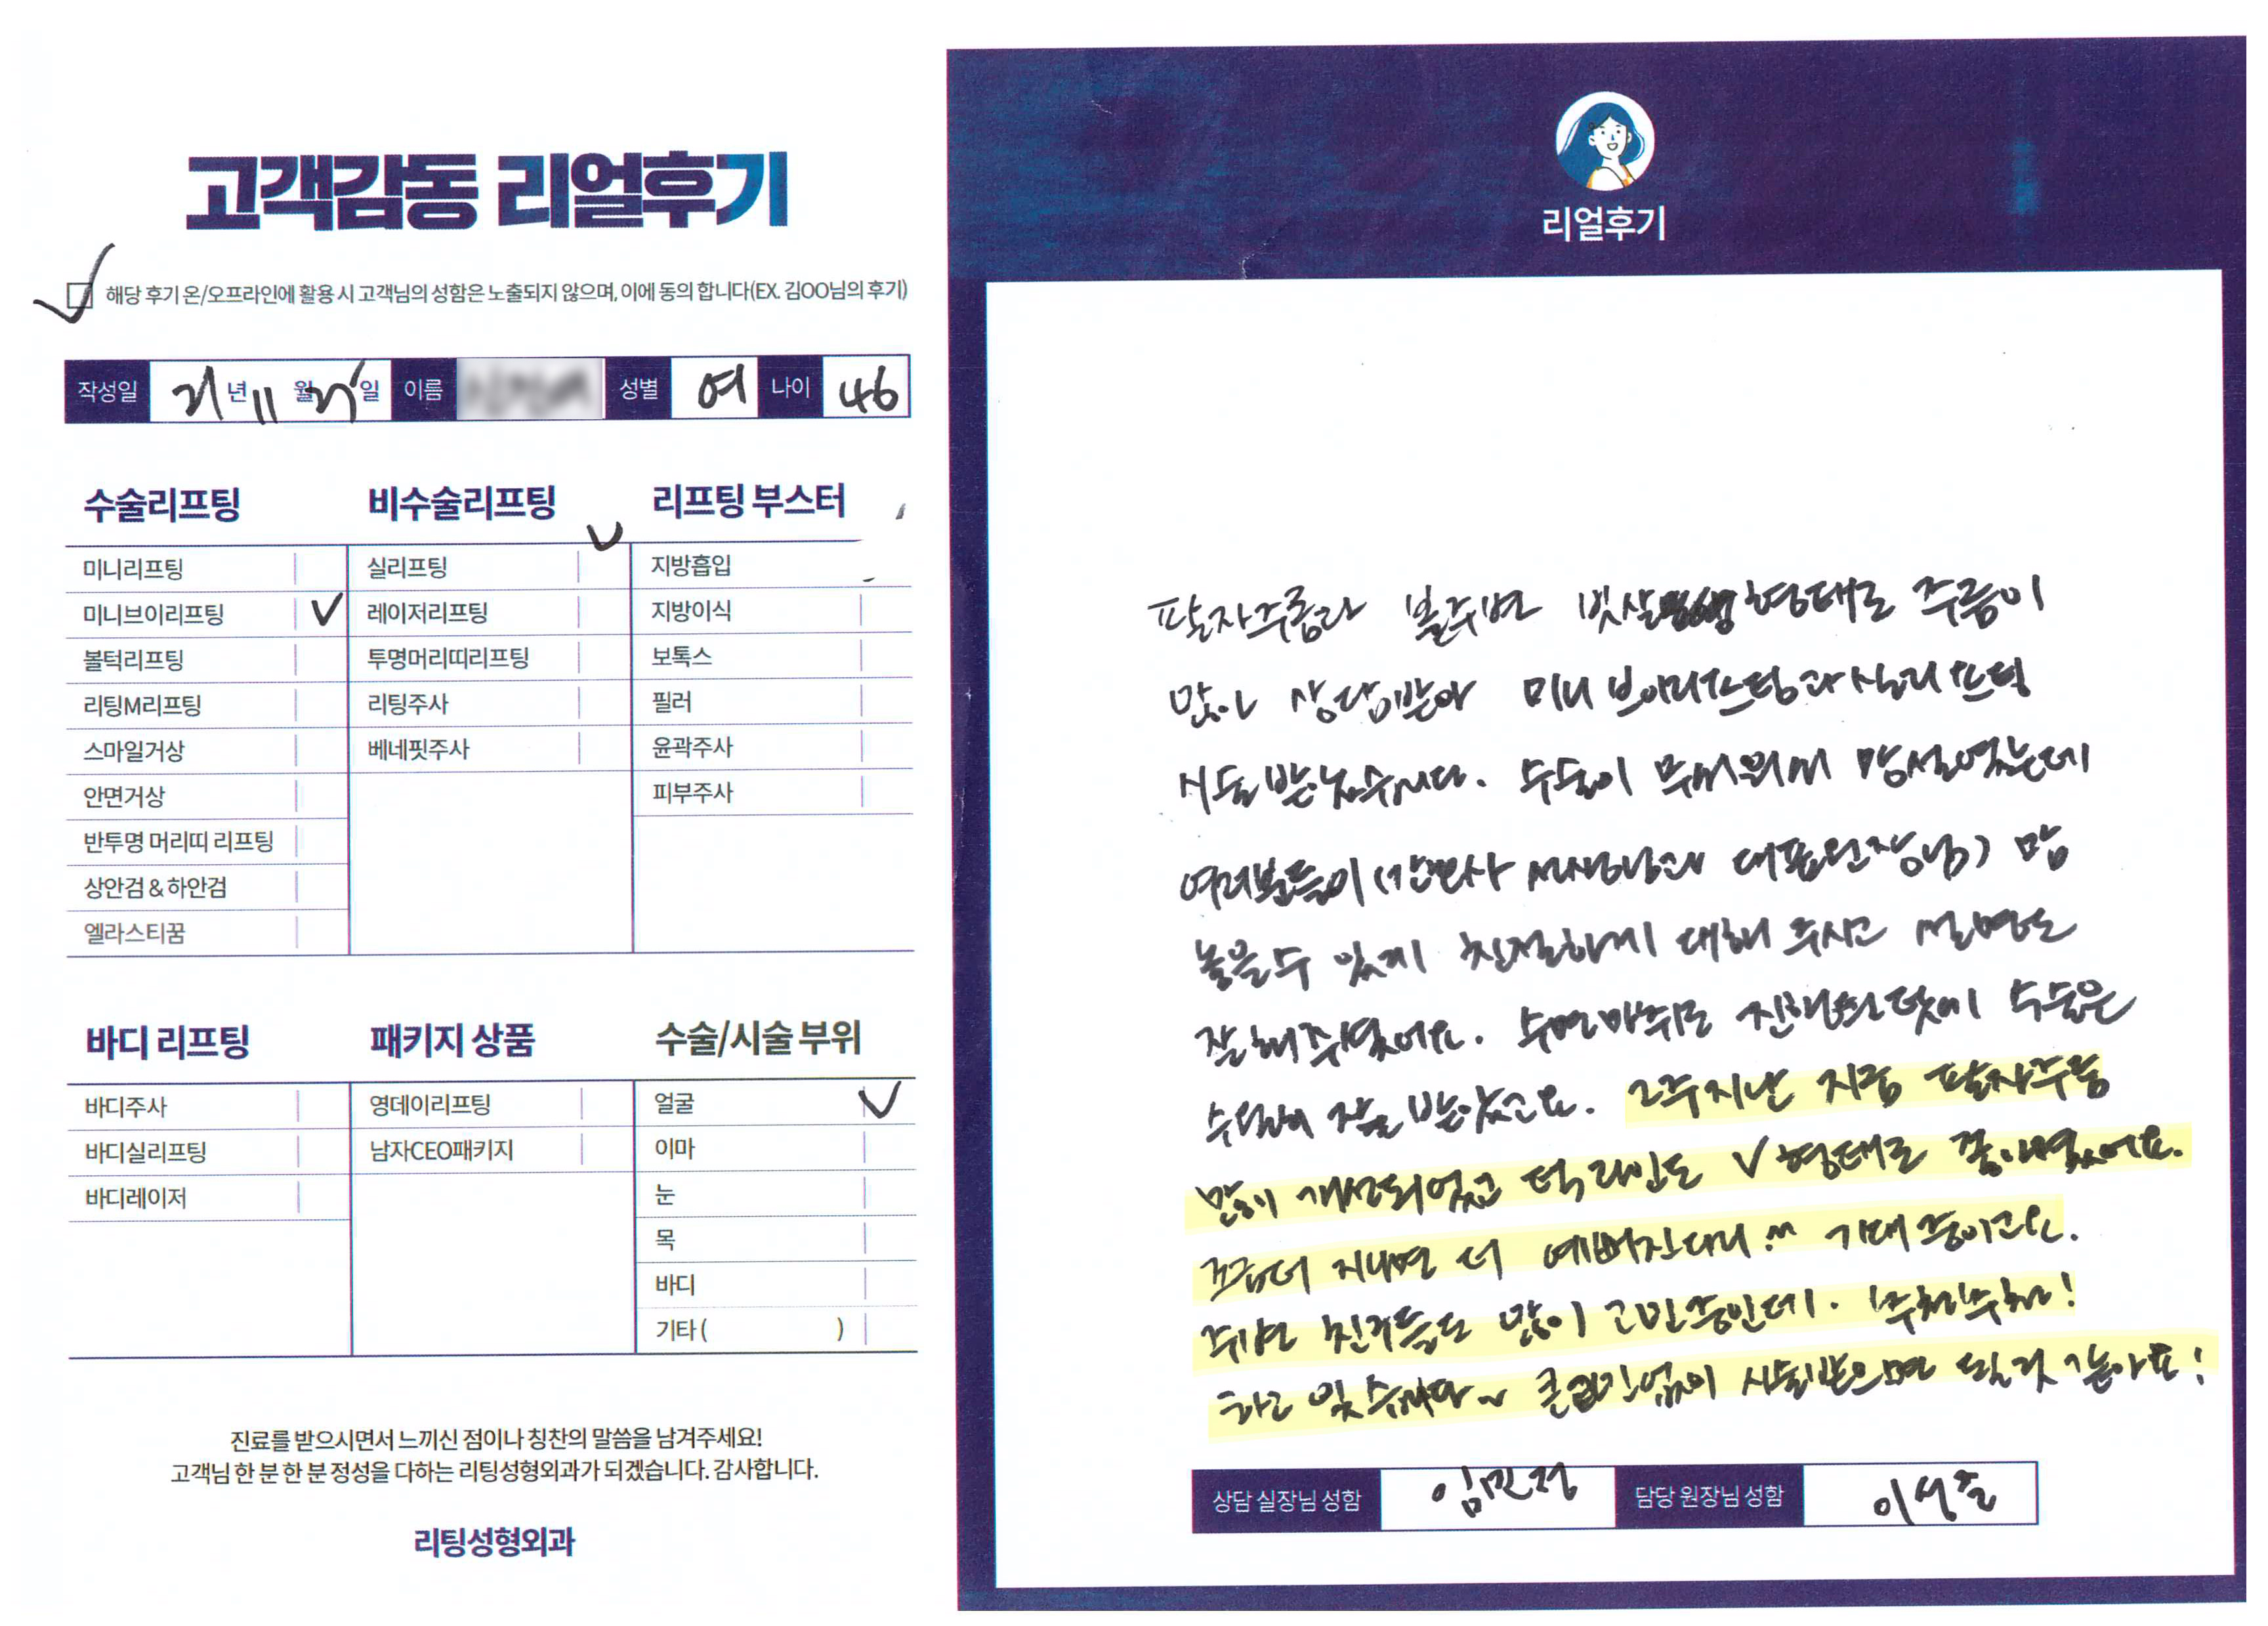 고객감동 리얼후기
해당 후기 온/오프라인에 활용 시 고객님의 성함은 노출되지 않으며, 이에 동의 합니다(EX. 김OO님의 후기)
작성일 21년 11월 25일 이름 성별 여 나이 46
수술리프팅
미니리프팅
미니브이리프팅
볼턱리프팅
리팅M리프팅
스마일거상
안면거상
반투명 머리띠 리프팅
상안검 & 하안검
엘라스티꿈
비수술리프팅
실리프팅
레이저리프팅
투명머리띠리프팅
리팅주사
베네핏주사
리프팅 부스터
지방흡입
지방이식
보톡스
필러
윤곽주사
피부주사
바디 리프팅
바디주사
바디실리프팅
바디레이저
패키지 상품
영데이리프팅
남자CEO패키지
수술/시술 부위
얼굴
이마
눈
목
바디
기타 ( )
진료를 받으시면서 느끼신 점이나 칭찬의 말씀을 남겨주세요!
고객님 한 분 한 분 정성을 다하는 리팅성형외과가 되겠습니다. 감사합니다.
리팅성형외과
리얼후기
팔자주름과 볼주변 빗살 형태로 주름이
많아 상담받아 미니 브이리프팅과 실리프팅
시술 받았습니다. 수술이 무서워서 망설였는데
여러분들이 (간호사 선생님과 대표원장님) 맘
놓을수 있게 친절하게 대해 주시고 설명도
잘 해주셨어요. 수면마취로 진행한 덧에 수술은
수월히 잘 받았고요. 2주지난 지금 팔자주름
많이 개선되었고 턱 라인도 V형태로 좋아졌어요.
조금더 지나면 더 예뻐진다니 ^^ 기대 중이고요.
주변 친구들도 많이 고민중인데. 추천추천!
하고 있습니다~ 큰 고민없이 시술받으면 될것 같아요!
상담 실장님 성함 임민정 담당 원장님 성함